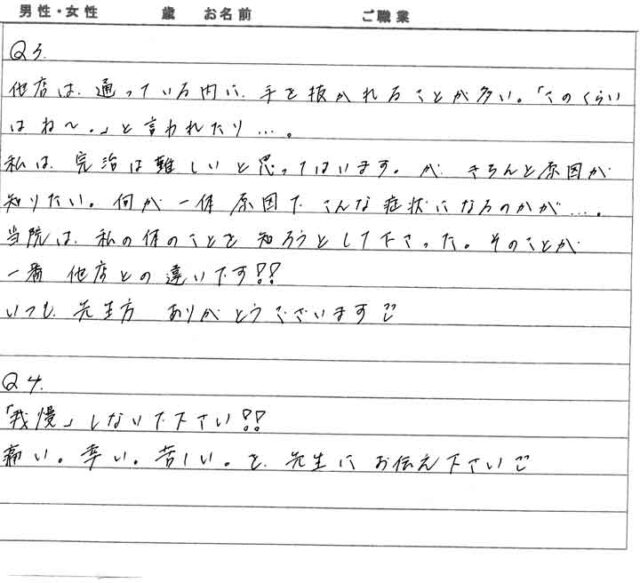 男性・女性 歳 お名前 ご職業
Q3.
他店は、通っている内に、手を抜かれることが多い。「このくらい
はね〜。」と言われたり…。
私は、完治は難しいと思ってはいます。が、きちんと原因が
知りたい。何が一体原因で、こんな症状になるのかが…。
当院は、私の体のことを知ろうとして下さった。そのことが
一番 他店との違いです!!
いつも、先生方 ありがとうございます
Q4.
「我慢」しないで下さい!!
痛い。辛い。苦しい。を、先生にお伝え下さい